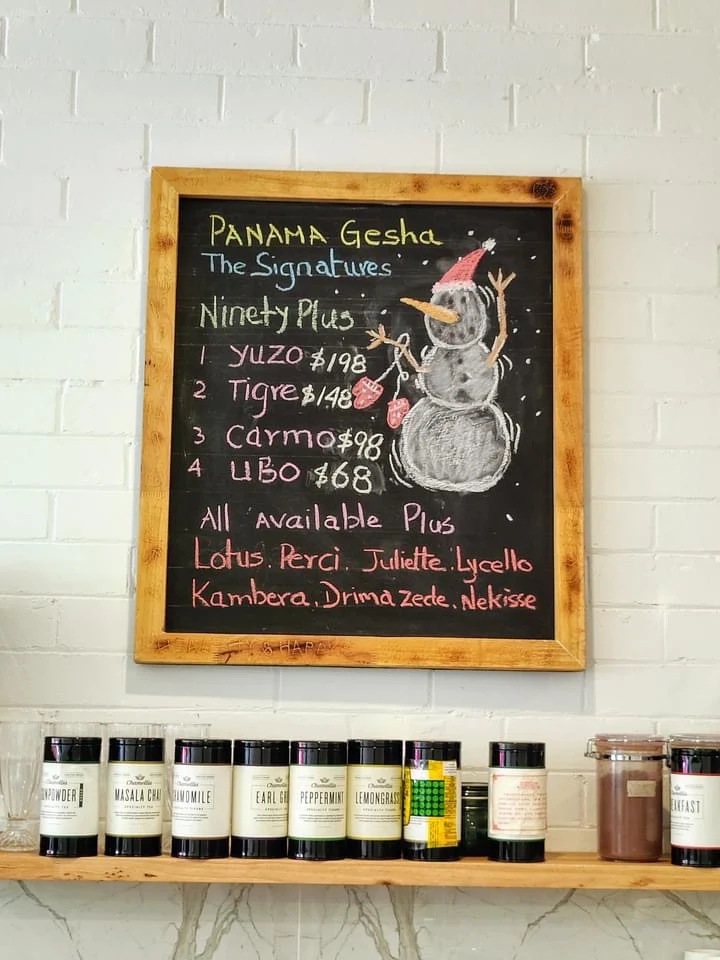 PANAMA Gesha
The Signatures
Ninety Plus
1 yuzo $198
2 Tigre $148
3 Carmo $98
4 uBo $68
All Available Plus
Lotus. Perci. Juliette. Lycello
Kambera. Drima zede. Nekisse
Chamellia
MASALA CHAI
SPECIALTY TEA
CHAMOMILE
Chamellia
EARL GR
SPECIALTY TEA
Chamellia
PEPPERMINT
Chamellia
LEMONGRASS
NPOWDER
EAKFAST